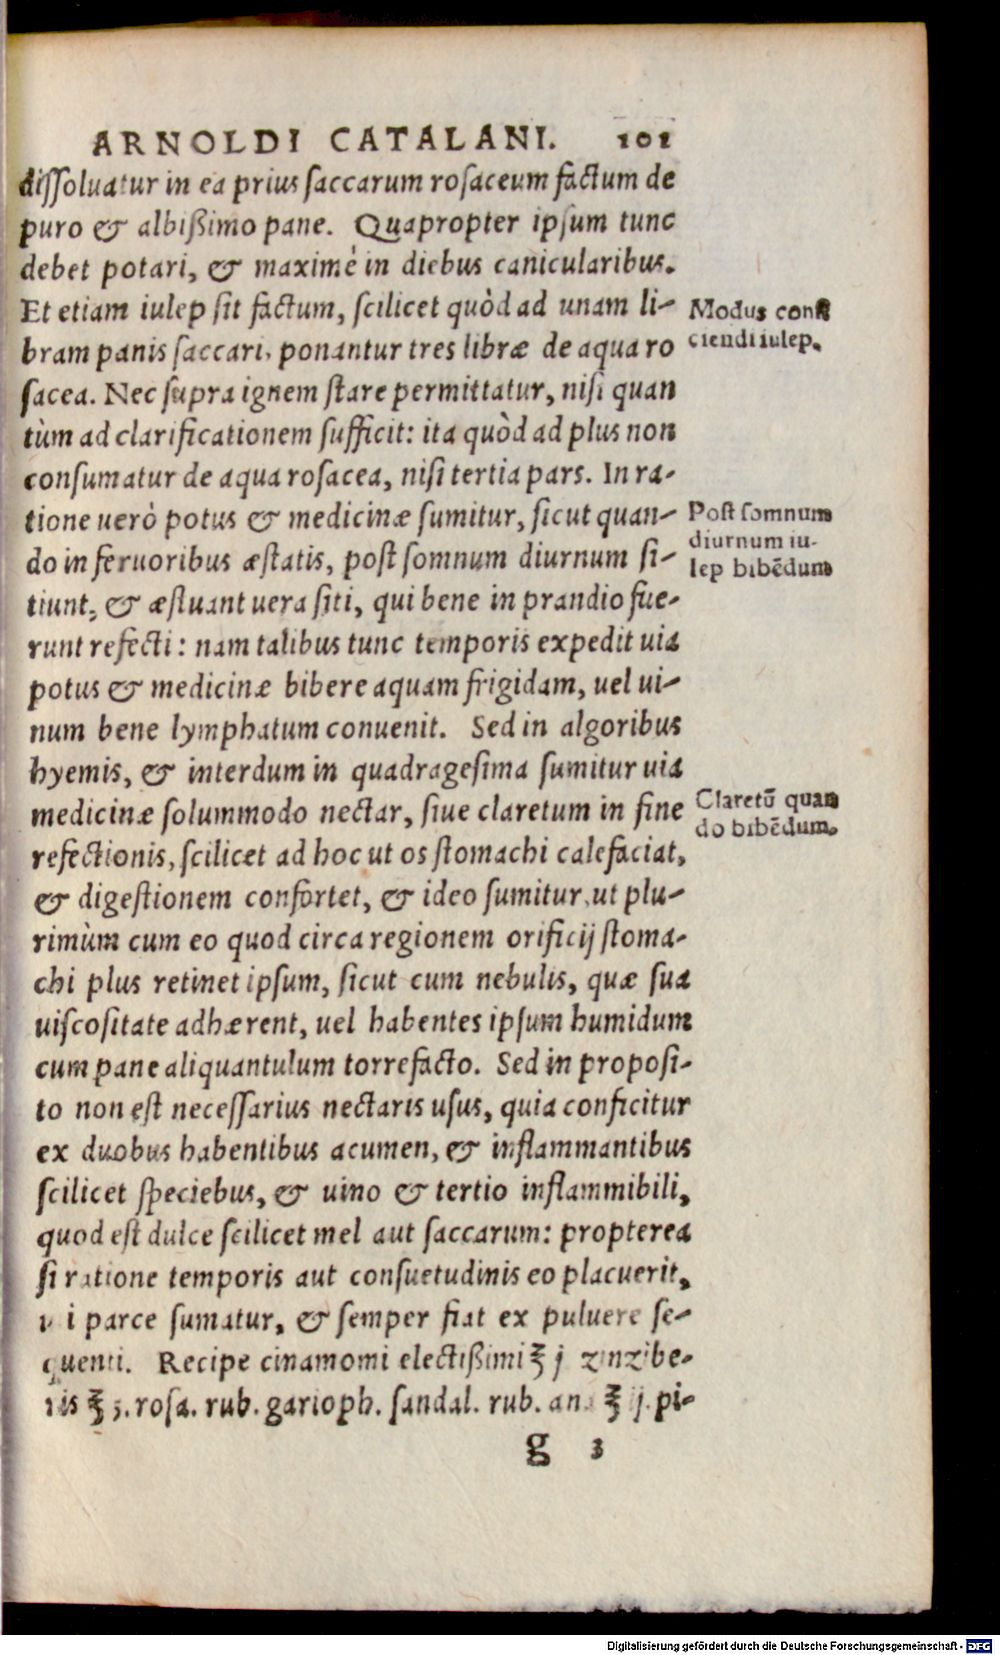 ARNOLDI CATALANI. 101
dissoluatur in ea prius saccarum rosaceum factum de
puro & albißimo pane. Quapropter ipsum tunc
debet potari, & maximè in diebus canicularibus.
Et etiam iulep sit factum, scilicet quòd ad unam li-
bram panis saccari, ponantur tres libræ de aqua ro
sacea. Nec supra ignem stare permittatur, nisi quan
tùm ad clarificationem sufficit: ita quòd ad plus non
consumatur de aqua rosacea, nisi tertia pars. In ra-
tione uerò potus & medicinæ sumitur, sicut quan-
do in feruoribus æstatis, post somnum diurnum si-
tiunt, & æstuant uera siti, qui bene in prandio fue-
runt refecti: nam talibus tunc temporis expedit uia
potus & medicinæ bibere aquam frigidam, uel ui-
num bene lymphatum conuenit. Sed in algoribus
hyemis, & interdum in quadragesima sumitur uia
medicinæ solummodo nectar, siue claretum in fine
refectionis, scilicet ad hoc ut os stomachi calefaciat,
& digestionem confortet, & ideo sumitur, ut plu-
rimùm cum eo quod circa regionem orificij stoma-
chi plus retinet ipsum, sicut cum nebulis, quæ sua
uiscositate adhærent, uel habentes ipsum humidum
cum pane aliquantulum torrefacto. Sed in proposi-
to non est necessarius nectaris usus, quia conficitur
ex duobus habentibus acumen, & inflammantibus
scilicet speciebus, & uino & tertio inflammibili,
quod est dulce scilicet mel aut saccarum: propterea
si ratione temporis aut consuetudinis eo placuerit,
parce sumatur, & semper fiat ex puluere se-
quenti. Recipe cinamomi electißimi ℥ j zinzibe-
ris ℥ rosa. rub. garioph. sandal. rub. an. ℥ ij. pi-
g 3
Modus confi
ciendi iulep.
Post somnum
diurnum iu-
lep bibẽdum
Claretũ quan
do bibẽdum.
Digitalisierung gefördert durch die Deutsche Forschungsgemeinschaft - DFG